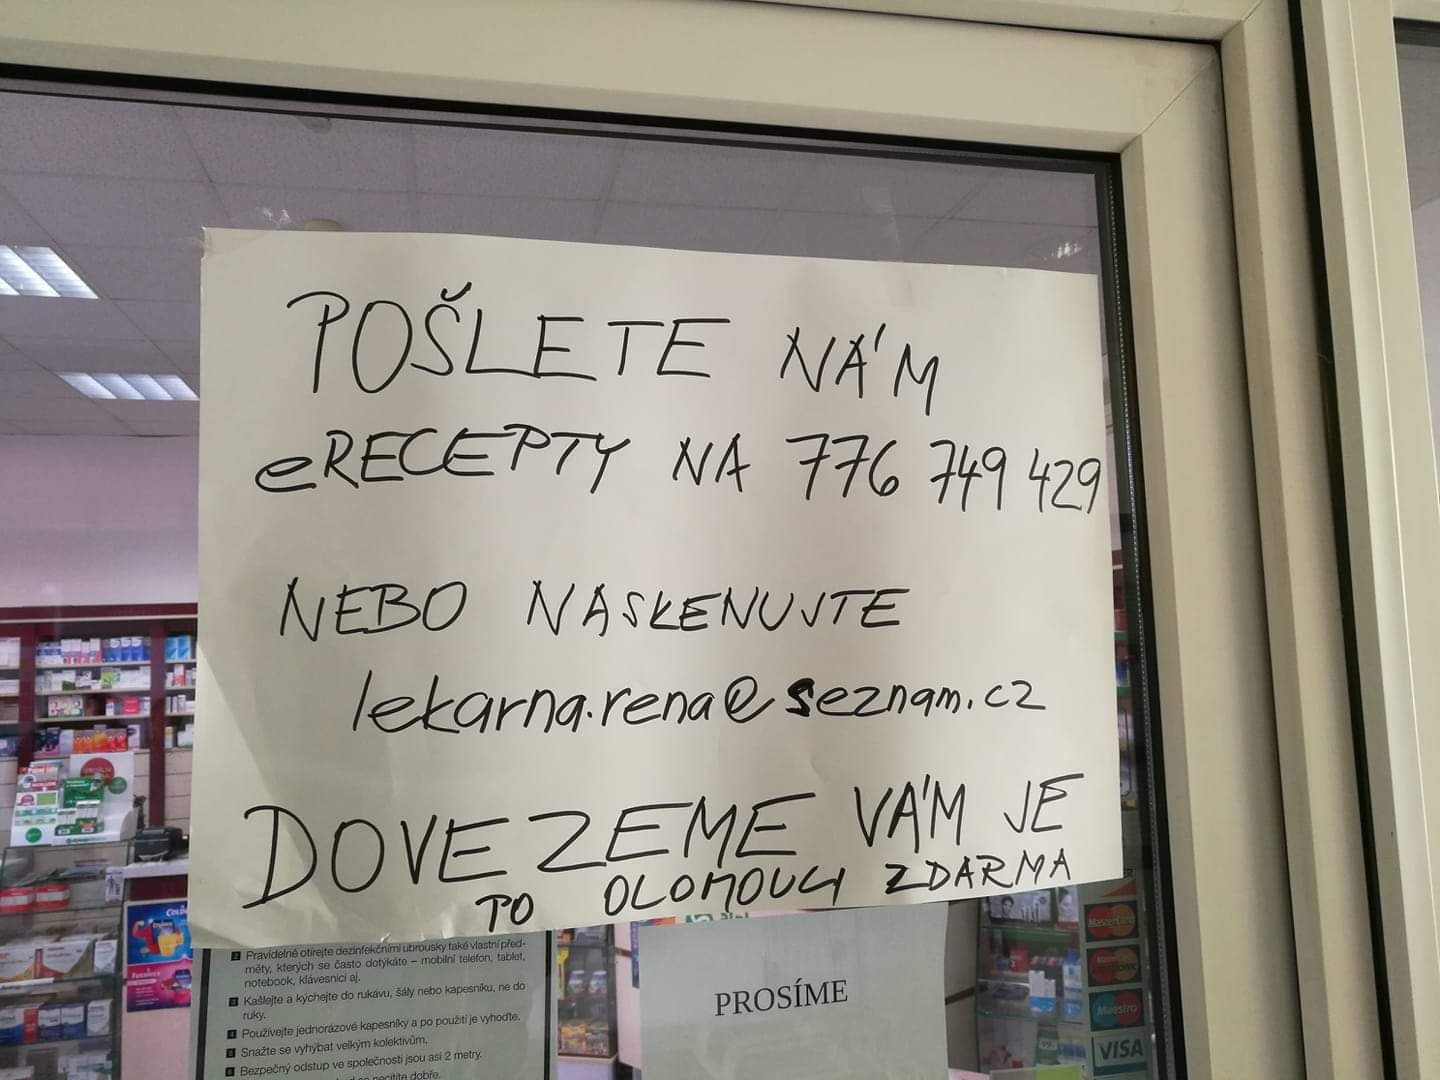 POŠLETE NÁM
eRECEPTY NA 776 749 429
NEBO NASKENUJTE
lekarna.rena@seznam.cz
DOVEZEME VÁM JE
PO OLOMOUCI ZDARMA
2 Pravidelně otírejte dezinfekčními ubrousky také vlastní před-
měty, kterých se často dotýkáte – mobilní telefon, tablet,
notebook, klávesnici aj.
3 Kašlejte a kýchejte do rukávu, šály nebo kapesníku, ne do
ruky.
4 Používejte jednorázové kapesníky a po použití je vyhoďte.
5 Snažte se vyhýbat velkým kolektivům.
6 Bezpečný odstup ve společnosti jsou asi 2 metry.
necítíte dobře.
PROSÍME
MasterCard
Maestro
VISA